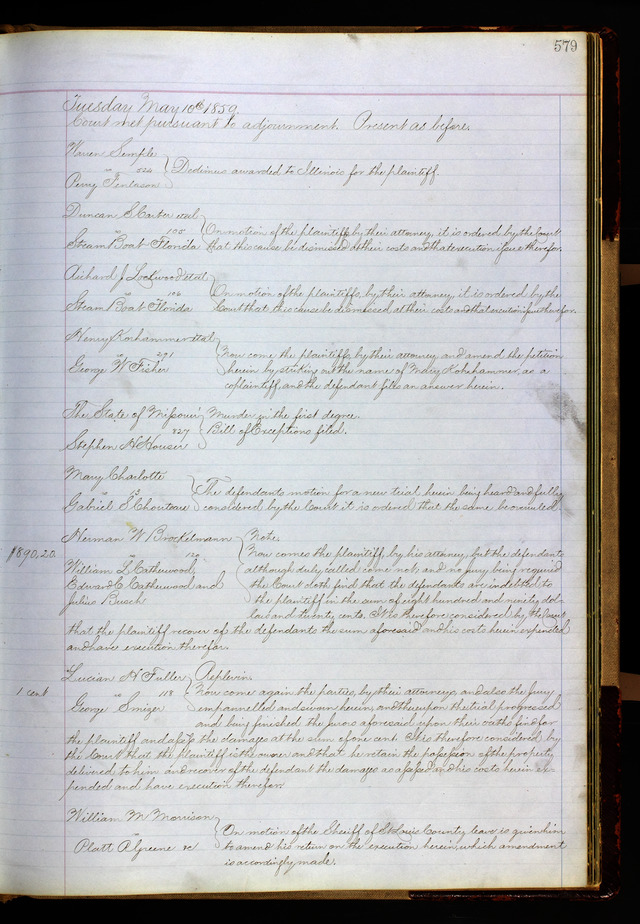 579
Tuesday May 10th 1859
Court met pursuant to adjournment. Present as before.
Warren Semple
vs 524 Dedimus awarded to Illinois for the plaintiff.
Perry Tenbason
Duncan S Carter et al
vs 100 On motion of the plaintiffs, by their attorney, it is ordered by the Court
Steam Boat Florida that this cause be dismissed at their costs and that execution issue therefor.
Richard J Lockwood et al
vs 106 On motion of the plaintiffs, by their attorney, it is ordered by the
Steam Boat Florida Court that this cause be dismissed at their costs and that execution issue therefor.
Henry Koshammer et al
vs 291 Now come the plaintiffs, by their attorney, and amend the petition
George W Fisher herein by striking out the name of Mary Kohshammer, as a
coplaintiff, and the defendant files an answer herein.
The State of Missouri Murder in the first degree.
vs 827 Bill of Exceptions filed.
Stephen H Houser
Mary Charlotte
vs 13 The defendants motion for a new trial herein being heard and fully
Gabriel S Chouteau considered by the Court it is ordered that the same be overruled.
Herman W Brockelmann Note.
$890,20. vs 120 Now comes the plaintiff, by his attorney, but the defendants
William L Catherwood, although duly called come not, and no jury being required
Edward C Catherwood and the Court doth find that the defendants are indebted to
Julius Busch the plaintiff in the sum of eight hundred and ninety dol-
lars and twenty cents. It is therefore considered by the Court
that the plaintiff recover of the defendants the sum aforesaid and his costs herein expended
and have execution therefor.
Lucian H Fuller Replevin.
1 cent vs 118 Now come again the parties, by their attorneys, and also the Jury
George Smizer empannelled and sworn herein, and thereupon the trial progressed
and being finished the Jurors aforesaid upon their oaths find for
the plaintiff and assess the damages at the sum of one cent. It is therefore considered by
the Court that the plaintiff is the owner and that he retain the possession of the property
delivered to him and recover of the defendant the damages as assessed and his costs herein ex-
pended and have execution therefor.
William M Morrison
vs On motion of the Sheriff of St Louis County leave is given him
Platt R Greene &c to amend his return on the execution herein, which amendment
is accordingly made.